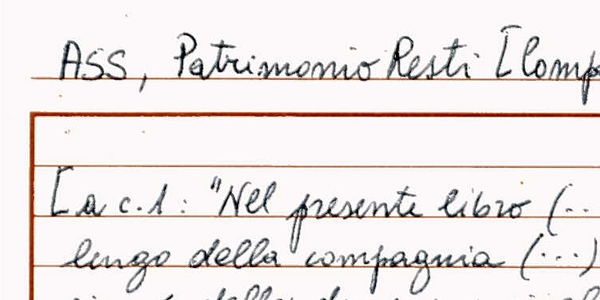 ASS, Patrimonio Resti [Comp
[a c.1: "Nel presente libro (..
lengo della compagnia (...)